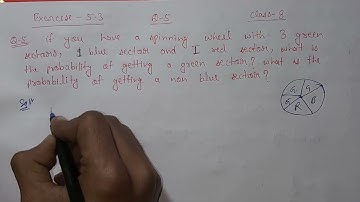 Exercise - 5.3 Q-5 Class-8
Q-5 if you have a spinning wheel with 3 green
sectors, 1 blue sector and 1 red sector, what is
the probability of getting a green sector? what is the
probability of getting a non blue sector?
Solⁿ
G
G G
R B